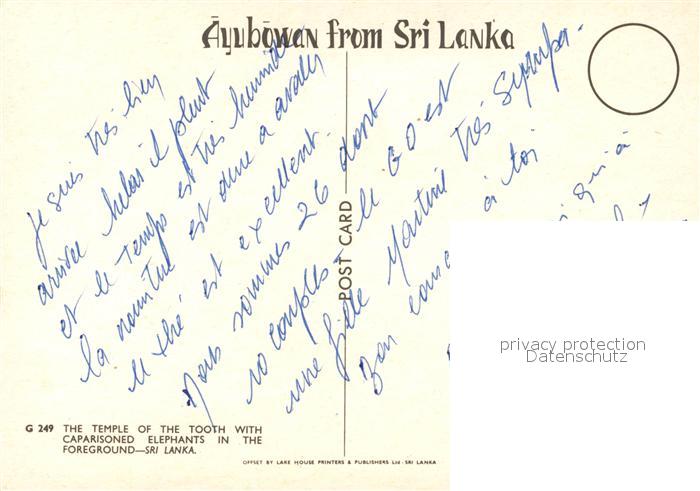 Āyubōwan from Sri Lanka
Je suis très bien
arrivée helas il pleut
et le temps est très humide
la nourriture est dure a avaler
le thé est excellent.
Nous sommes 26 dont
10 couples le GO est
une fille Martine très sympa.
Bon à toi
qui à
POST CARD
privacy protection
Datenschutz
G 249 THE TEMPLE OF THE TOOTH WITH
CAPARISONED ELEPHANTS IN THE
FOREGROUND—SRI LANKA.
OFFSET BY LAKE HOUSE PRINTERS & PUBLISHERS Ltd - SRI LANKA